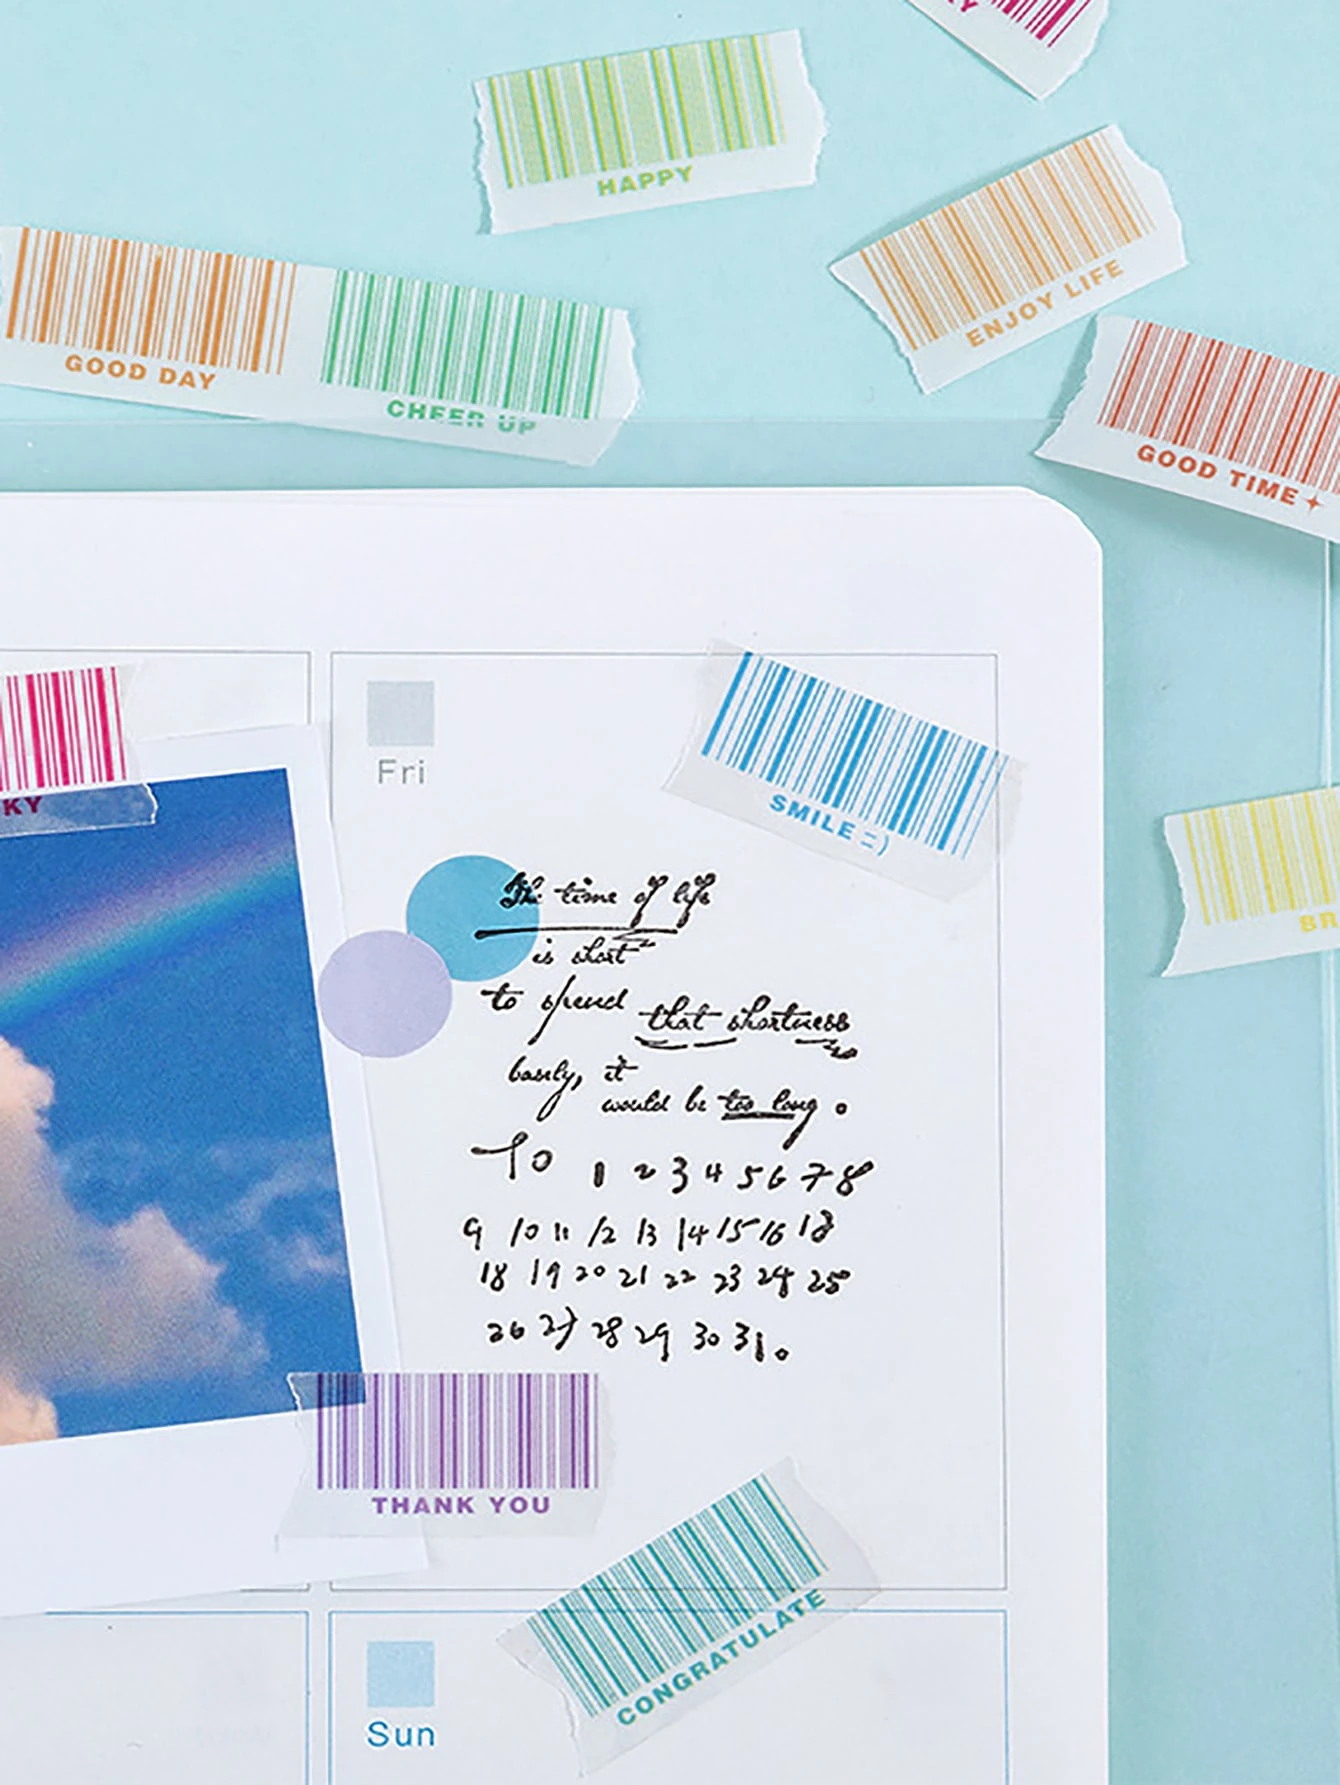 HAPPY
ENJOY LIFE
GOOD DAY
CHEER UP
GOOD TIME
KY
Fri
SMILE =)
The time of life
is short
to spend that shortness
basely, it
would be too long.
To 1 2 3 4 5 6 7 8
9 10 11 12 13 14 15 16 18
18 19 20 21 22 23 24 25
26 27 28 29 30 31.
THANK YOU
CONGRATULATE
Sun